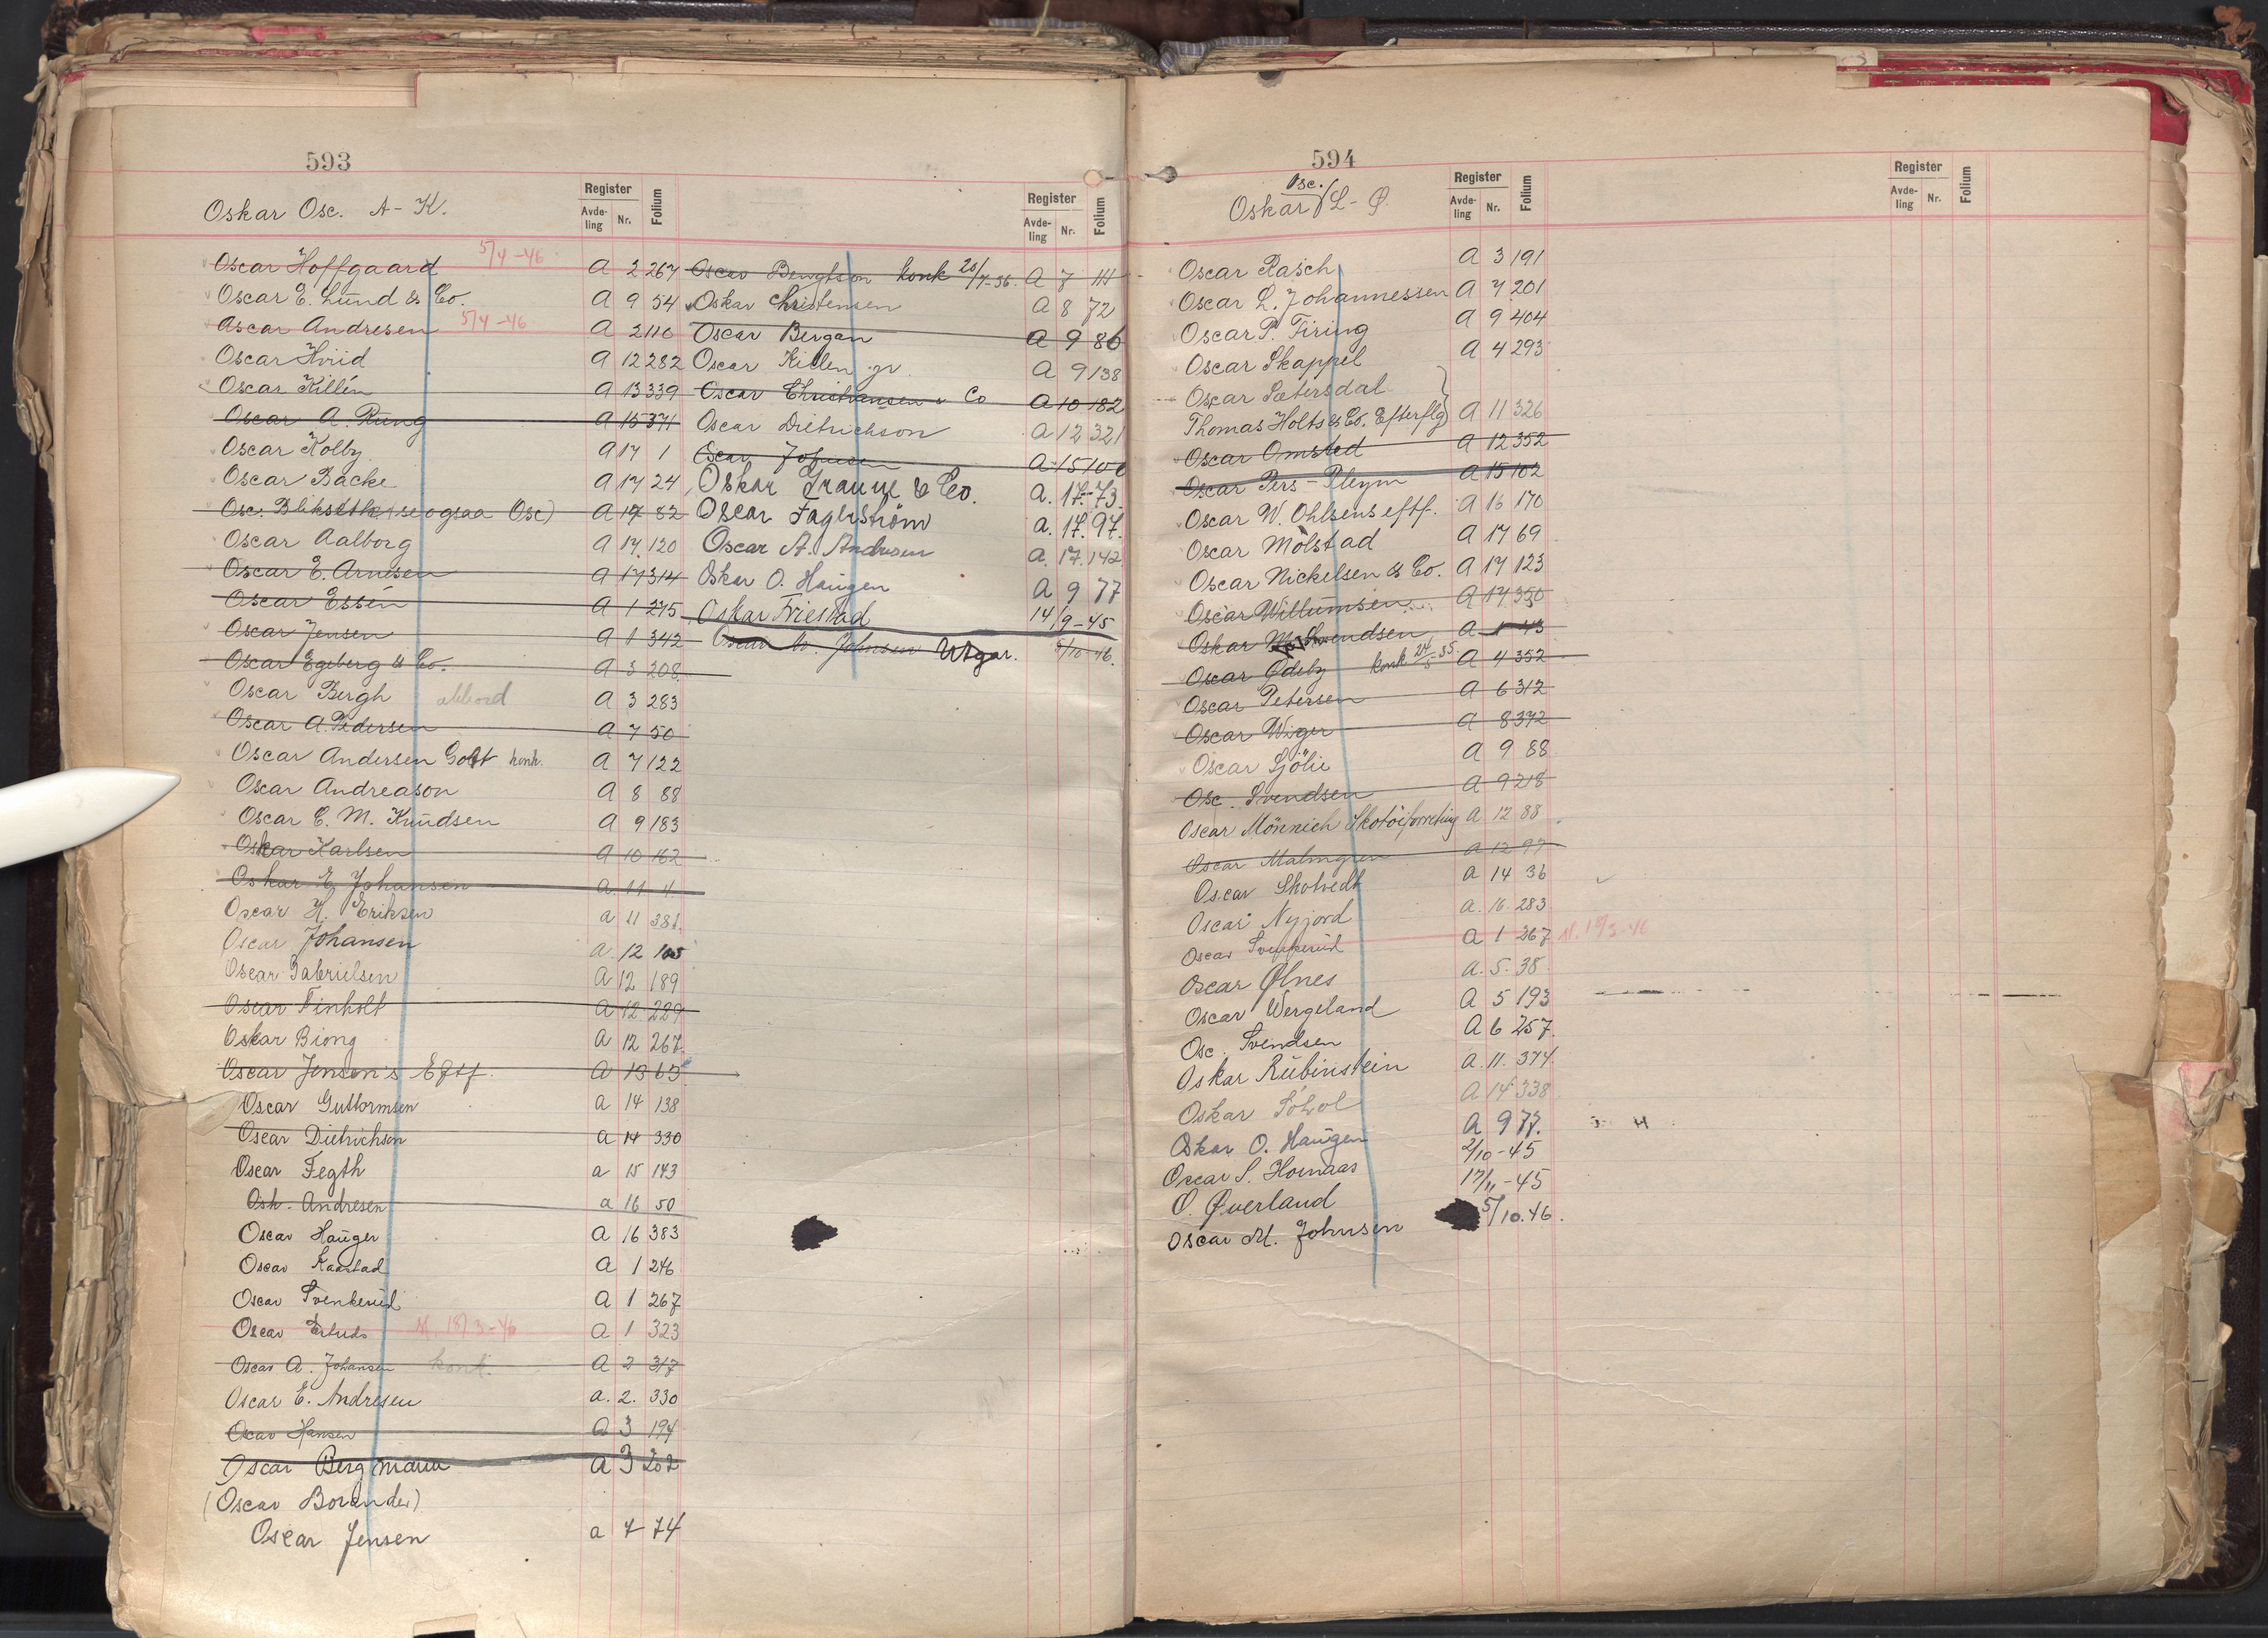 593
Oskar Osc. A-K.
Register
Avde-
ling
Nr.
Folium
Oscar Hoffgaard 5/4-46 A 2 267
Oscar E. Lund & Co. A 9 54
Oscar Andresen 5/4-46 A 2 110
Oscar Hviid A 12 282
Oscar Killén A 13 339
Oscar A. Rung A 15 371
Oscar Kolby A 17 1
Oscar Backe A 17 24
Osc. Blikseth (se ogsaa Osc) A 17 82
Oscar Aalborg A 17 120
Oscar E. Arnesen A 17 314
Oscar Essén A 1 275
Oscar Jensen A 1 342
Oscar Egeberg & Co. A 3 208
Oscar Bergh A 3 283
Oscar A. Pedersen A 7 50
Oscar Andersen konk. A 7 122
Oscar Andreason A 8 88
Oscar C. M. Knudsen A 9 183
Oskar Karlsen A 10 162
Oskar E. Johansen A 11 4
Oscar H. Eriksen A 11 381.
Oscar Johansen A. 12 165
Oscar Gabrielsen A 12 189
Oscar Finholt A 12 229
Oskar Biong A 12 267.
Oscar Jensen's Eftf. A 13 63
Oscar Guttormsen A 14 138
Oscar Dietrichson A 14 330
Oscar Fegth A 15 143
Osk. Andresen A 16 50
Oscar Hauger A 16 383
Oscar Kaastad A 1 246
Oscar Svenkerud A 1 267
Oscar 18/3-46 A 1 323
Oscar A. Johansen konk. A 2 317
Oscar E. Andresen A. 2. 330
Oscar Hansen A 3 194
Oscar Bergmann A 3 202
(Oscar Borander)
Oscar Jensen A 7 74
Register
Avde-
ling
Nr.
Folium
Oscar Bengtson konk 20/7-36. A 7 111
Oskar Christensen A 8 72
Oscar Bergan A 9 86
Oscar Killen jr. A 9 138
Oscar Christiansen & Co A 10 182
Oscar Dietrichson A 12 321
Oscar Johnsen A 15 100
Oskar Traum & Co. A. 17. 73.
Oscar Fagerström A. 17. 97.
Oscar A. Andresen A. 17. 142
Oskar O. Haugen A 9 77
Oskar Friestad 14/9-45
Oscar M. Johnsen Utgår. 5/10-46.
594
Osc.
Oskar L-Ø.
Register
Avde-
ling
Nr.
Folium
Oscar Rasch A 3 191
Oscar L. Johannessen A 7 201
Oscar P. Firing A 9 404
Oscar Skappel A 4 293
Oscar Sætersdal
Thomas Holts & Co. Efterflg A 11 326
Oscar Omsted A 12 352
Oscar Pers-Pleym A 15 102
Oscar W. Ohlsens eftf. A 16 170
Oscar Mölstad A 17 69
Oscar Nickelsen & Co. A 17 123
Oscar Willumsen A 17 350
Oskar Svendsen A 1 43
Oscar Ødeby konk 24/5 35. A 4 352
Oscar Petersen A 6 312
Oscar Wiger A 8 372
Oscar Sjölie A 9 88
Osc. Svendsen A 9 218
Oscar Mönnich Skotöiforretning A 12 88
Oscar Malmgren A 12 97
Oscar Skotvedt A 14 36
Oscar Nyjord A. 16. 283.
Oscar Svenkerud A 1 267 18/3-46
Oscar Ølnes A. 5. 35.
Oscar Wergeland A 5 193
Osc. Svendsen A 6 257.
Oskar Rubinstein A. 11. 374.
Oskar A 14 338
Oskar O. Haugen A 9 77.
Oscar S. Hornaas 2/10-45
O. Øverland 17/11-45
Oscar M. Johnsen 5/10.46.
Register
Avde-
ling
Nr.
Folium